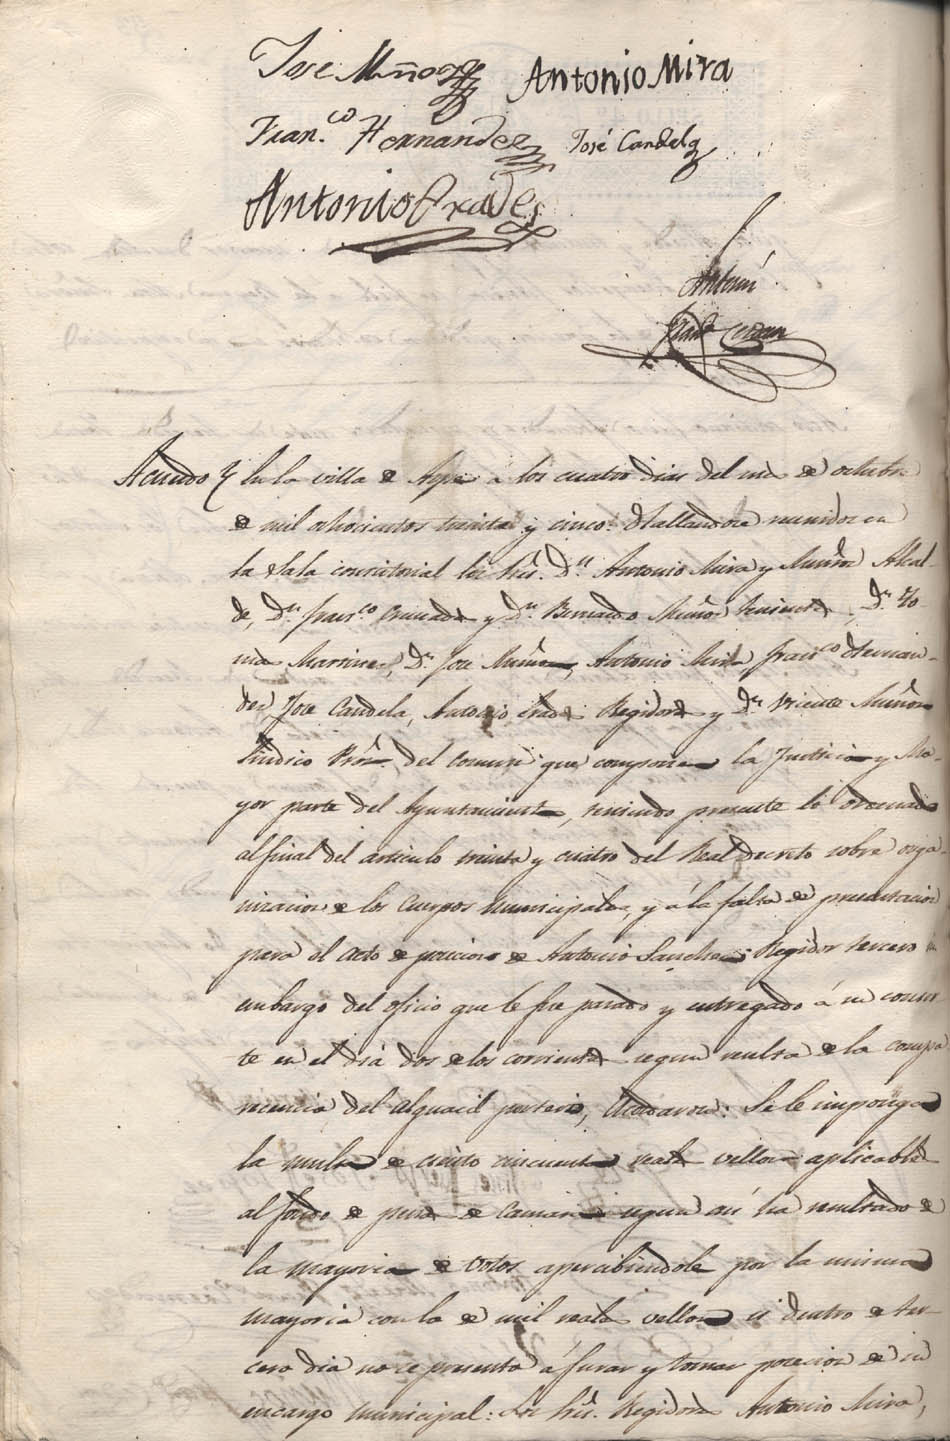 Jose Muñoz Antonio Mira
Fran.co Hernandez José Candela
Antonio Prades
Antonio
Acuerdo En la villa de Aspe á los cuatro dias del mes de octubre
de mil ochocientos treinta y cinco: Hallandose reunidos en
la Sala consistorial los Sres. Dn. Antonio Mira y Muñoz Alcal-
de, Dn. Franco. Cremades y Dn. Bernardo Muñoz tenientes, Dn. To-
mas Martinez, Dn. Jose Muñoz, Antonio Mira, Franco. Hernan-
dez, Jose Candela, Antonio Prades Regidores y Dn. Vicente Muñoz
Sindico Pror. del Comun que componen la Justicia y Ma-
yor parte del Ayuntamiento, teniendo presente lo ordenado
al final del articulo treinta y cuatro del Real decreto sobre orga-
nizacion de los Cuerpos Municipales, y á la falta de presentacion
para el acto de posesion de Antonio Sanchez Regidor tercero
embargo del oficio que le fue pasado y entregado á su consor
te en el dia dos de los corrientes segun resulta de la compa
recencia del Alguacil portero, Acordaron: Se le imponga
la multa de ciento cincuenta reales vellon aplicables
al fondo de penas de Camara segun asi ha resultado de
la mayoria de votos apercibiendole por la misma
mayoria con la de mil reales vellon si dentro de ter-
cero dia no se presenta á jurar y tomar posecion de su
encargo municipal: Los Sres. Regidores Antonio Mira,